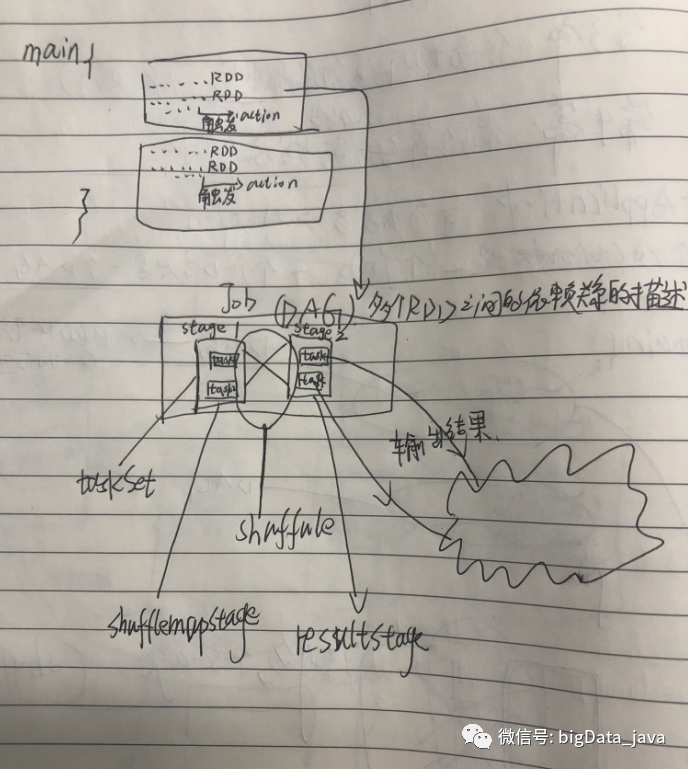 main{
RDD
RDD
触发 action
RDD
RDD
触发 action
}
Job (DAG) 多个RDD之间的依赖关系的描述
stage1 stage2
task task
task task
输出结果
taskSet
shuffule
shufflemapstage
resultstage
微信号: bigData_java